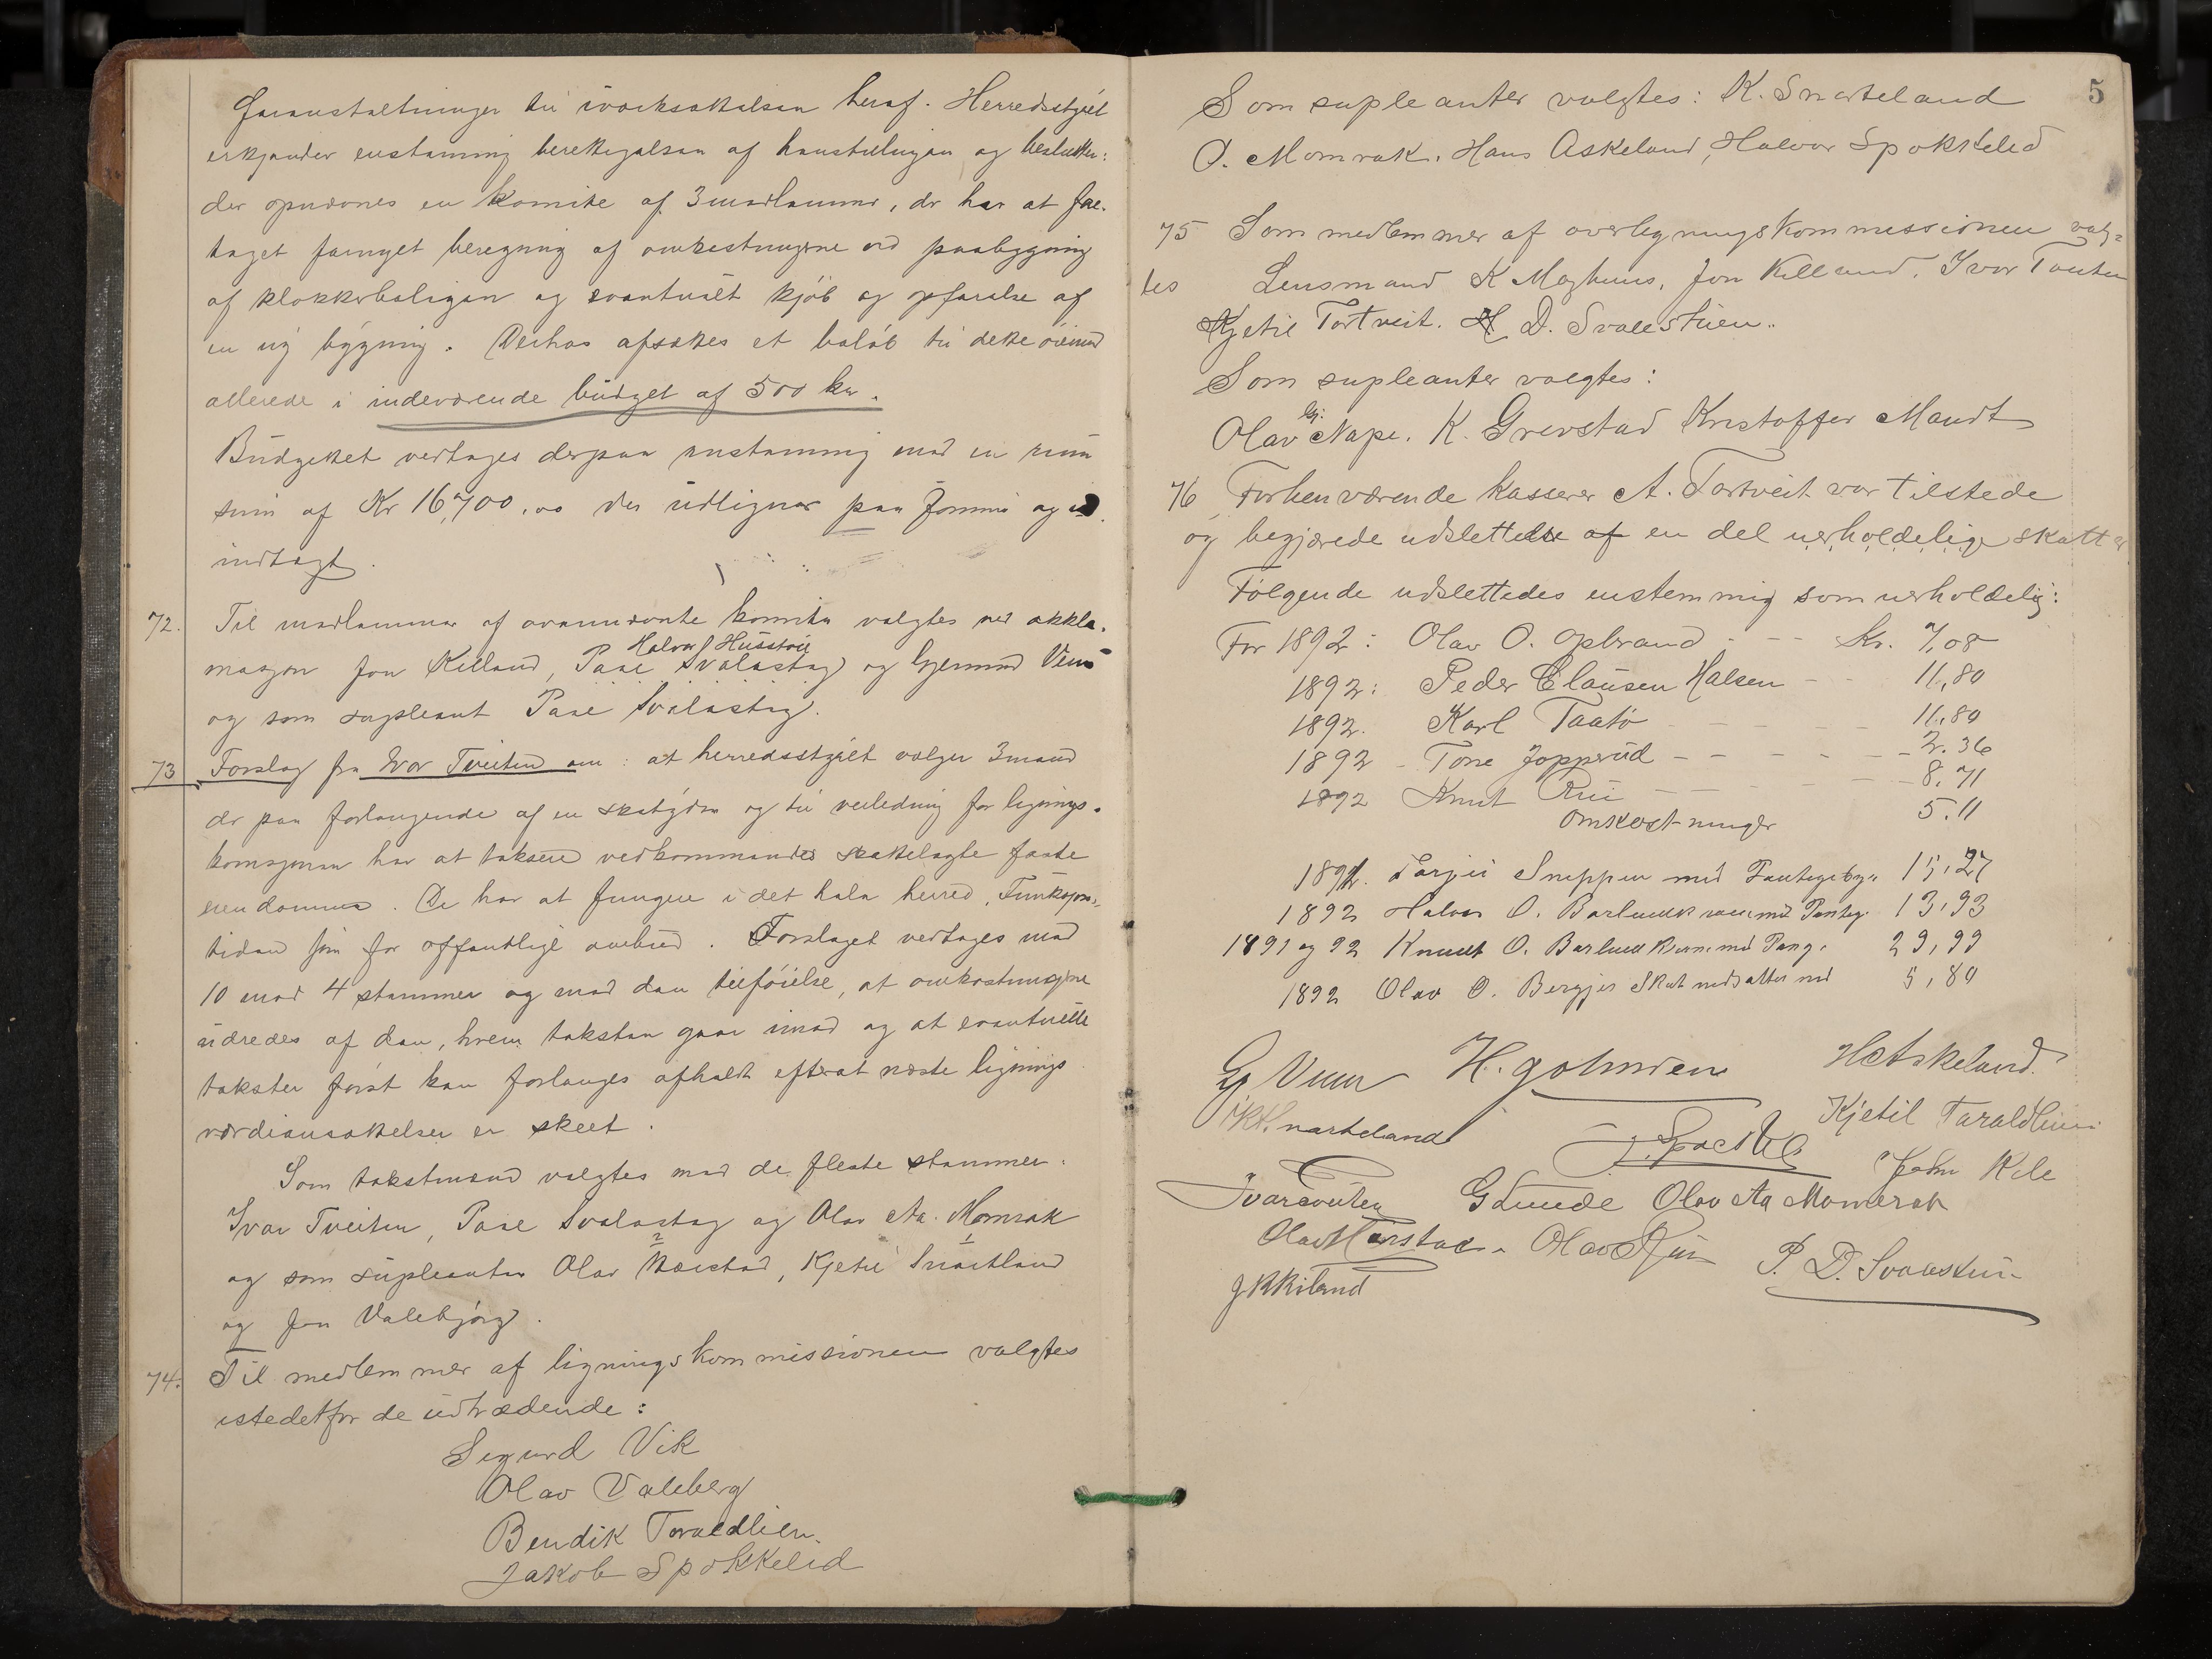 Foranstaltninger til iværksættelsen heraf. Herredsstyret
erkjender enstemmig berettigelsen af henstillingen og beslutter:
der opnævnes en komite af 3 medlemmer, der har at fore-
taget fornyet beregning af omkostningerne ved paabygning
af klokkerboligen og eventuelt kjøb og opførelse af
en ny bygning. Derhos afsættes et beløb til dette øiemed
allerede i indeværende budget af 500 kr.
Budgettet vedtages derpaa enstemmig med en
sum af Kr 16,700.00 der udlignes paa formue og
indtægt.
72. Til medlemmer af ovennævnte komite valgtes ved akkla-
Halvor Hustvei
masjon Jon Killand, Paal Svalastog og Gjermund Veum
og som supleant Paal Svalastog.
73 Forslag fra Ivar Tveiten om: at herredsstyret vælger 3 mænd
der paa forlangende af en skatyder og til veiledning for lignings-
komisjonen har at taksere vedkommendes skattelagte faste
eiendomme. De har at fungere i det hele herred. Funksjons-
tiden som for offentlige ombud. Forslaget vedtages med
10 mod 4 stemmer og med den tilføielse, at omkostningerne
udredes af den, hvem taksten gaar imod og at eventuelle
takster først kan forlanges afholdt efterat næste lignings
værdiansættelser er skeet.
Som takstmænd valgtes med de fleste stemmer:
Ivar Tveiten, Paal Svalastog og Olav Aa. Momrak
og som supleanter Olav Harstad, Kjetil Snarteland
og Jon Valebjørg.
74. Til medlemmer af ligningskommissionen valgtes
istedetfor de udtrædende:
Sigurd Vik
Olav Valeberg
Bendik Taraldlien
Jakob Spokkelid
5
Som supleanter valgtes: K. Snarteland
O. Momrak, Hans Askeland, Halvor Spokkelid
75 Som medlemmer af overligningskommissionen valg=
tes Lensmand K Moghuus, Jon Killand, Ivar Tveiten
Kjetil Tortveit. D. Svalestuen.
Som supleanter valgtes:
Olav Gj: Nape. K. Grevstad Kristoffer Mandt
76, Forhenværende kasserer A. Tortveit var tilstede
og begjærede udslettelse af en del uerholdelige skatter
Følgende udslettedes enstemmig som uerholdelig:
For 1892: Olav O. Opbrand - - - Kr. 7,08
1892: Peder Clausen Halsen - - 11,80
1892. Karl Taatø - - - - 11,80
1892 - Tone Jopperud - - - - - 2.36
1892 Knut Rui - - - - 8.71
Omkostninger 5.11
1891. Tarjei Sneppen med 15,27
1892 Halvor O. Barlund 13,93
1891 og 92 Knut O. Barlund 29,99
1892 Olav O. Bergjer Skat nedsattes med 5,80
Gj Veum H. Gotmoen H Askeland.
K H Snarteland J. Spokkeli Kjetil Taraldlien
John Kile
Ivar Tveiten G Lunde Olav Aa Momrak
Olav Harstad. Olav Rui P. D. Svalestuen
J K Kiland